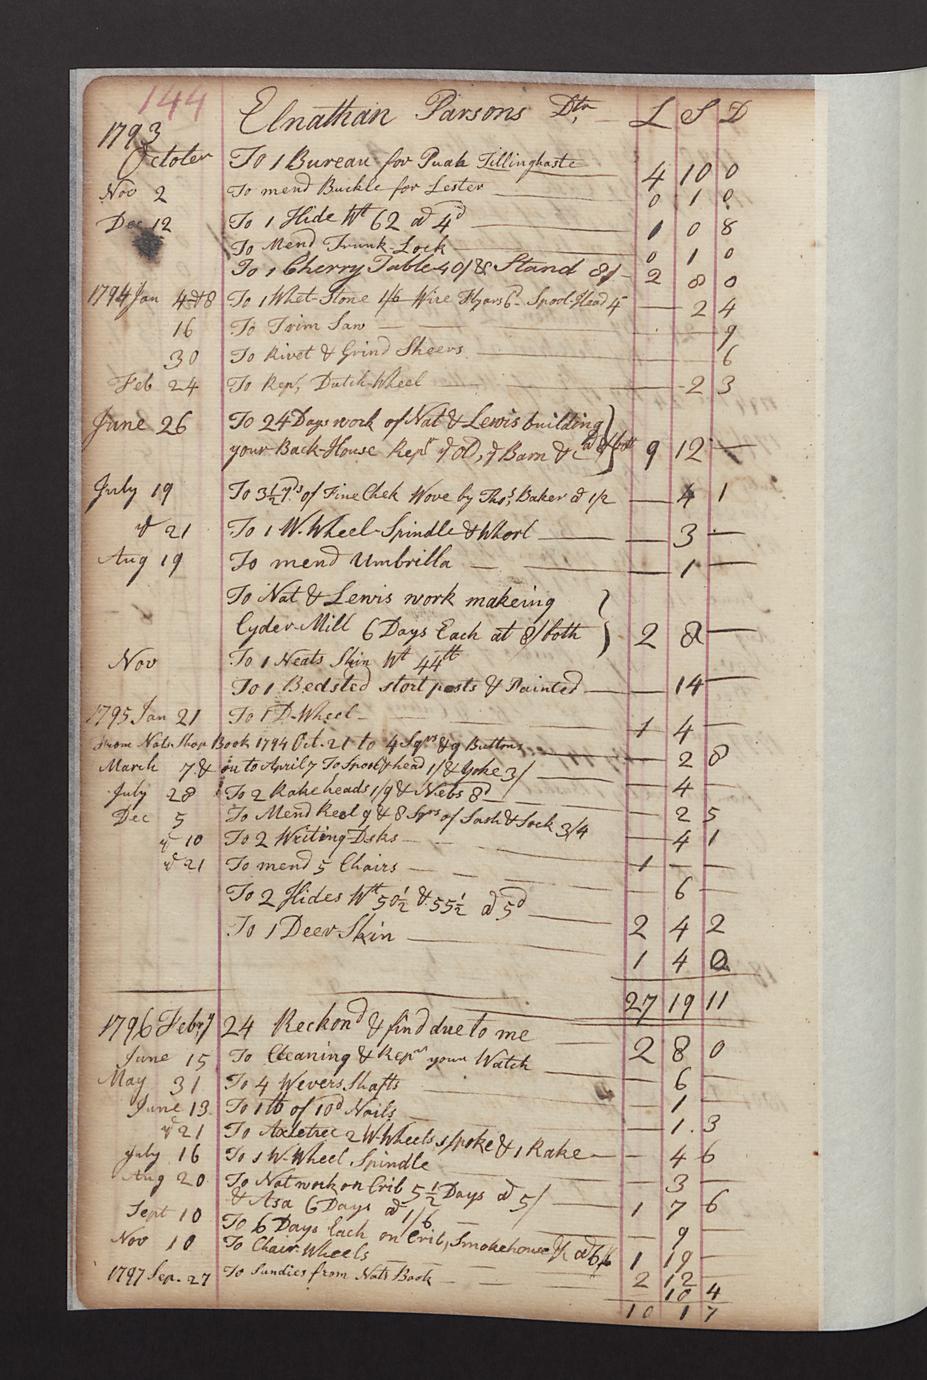 144
Elnathan Parsons Dtr. L S D
1793
October To 1 Bureau for Puah Tillinghaste 4 10 0
Nov 2 To mend Buckle for Lester 0 1 0
Dec 12 To 1 Hide Wt 62 @ 4d 1 0 8
To Mend Trunk-Lock 0 1 0
To 1 Cherry Table 40/ & Stand 8/ 2 8 0
1794 Jan 4 & 8 To 1 Whet-Stone 1/6 Wire 6d Spool-Head 4 — 2 4
16 To Trim Saw 9
30 To Rivet & Grind Sheers 6
Feb 24 To Repg Dutch-Wheel — 2 3
June 26 To 24 Days work of Nat & Lewis building
your Back-House Repg & Barn &c @ 8/ both 9 12 —
July 19 To 3½ yds of Fine Chek Wove by Thos Baker @ 1/2 — 4 1
& 21 To 1 W. Wheel-Spindle & Whorl — 3 —
Aug 19 To mend Umbrilla — 1 —
To Nat & Lewis work makeing
Cyder-Mill 6 Days Each at 8/ both 2 8 —
Nov To 1 Neats Skin Wt 44lb
To 1 Bedsted short posts & Painted — 14 —
1795 Jan 21 To 1 D-Wheel 1 4 —
From Nats Shop Book 1794 Oct. 21 to 4 Sqrs & 9 Buttons — 2 8
March 7 & on to April 7 To Spool head 1/ & Yoke 3/ — 4 —
July 28 To 2 Rakeheads 1/9 & Niebs 8d — 2 5
Dec 5 To Mend Reel 9 & 8 Sqrs of Sash & Lock 3/4 — 4 1
& 10 To 2 Writing Dsks 1 — —
& 21 To mend 5 Chairs — 6 —
To 2 Hides Wt 50½ & 55½ @ 5d 2 4 2
To 1 Deer Skin 1 4 0
27 19 11
1796 Febry 24 Reckond & find due to me 2 8 0
June 15 To Cleaning & Repg your Watch — 6 —
May 31 To 4 Wevers Shafts — 1 —
June 13 To 1 lb of 10d Nails — 1. 3
& 21 To Axletree 2 W Wheels spoke & 1 Rake — 4 6
July 16 To 1 W. Wheel Spindle — 3 —
Aug 20 To Nat work on Crib 5½ Days @ 5/ 1 7 6
& Asa 6 Days @ 1/6 — 9 —
Sept 10 To 6 Days Each on Crib, Smokehouse &c @ 6/6 1 19 —
Nov 10 To Chair-Wheels 2 12 —
1797 Sep. 27 To Sundies from Nats Book 10 4
10 1 7